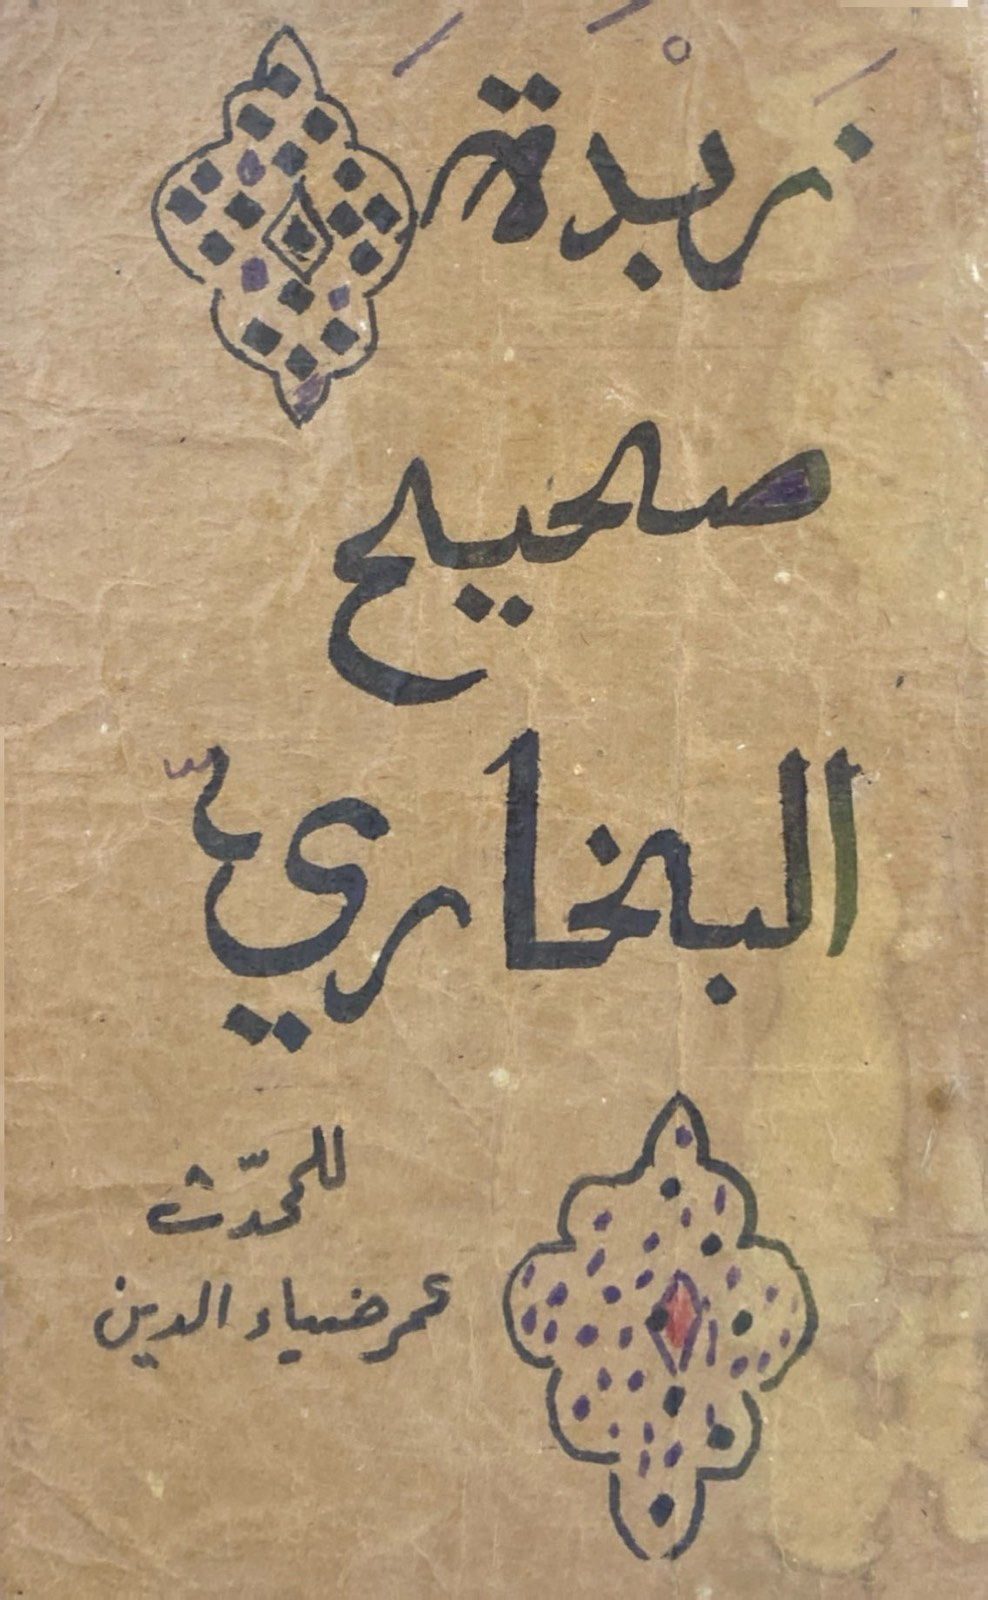 زبْدَةَ
صحيح
البخاري
للمحدّث
عمر ضياء الدين